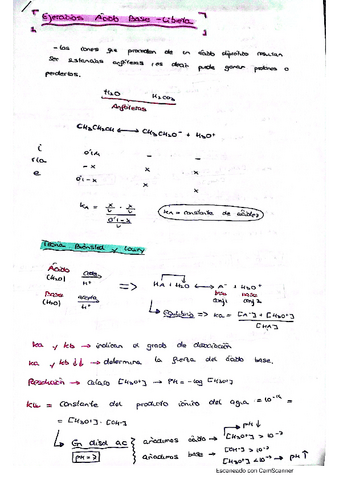 Ejercicios Ácido Base - Libreta
- Los iones que proceden de un ácido diprótico resultan
ser sustancias anfóteras (es decir, puede ganar protones o
perderlos.
H₂O H₂CO₃
Anfóteros
CH₃CH₂OH ⟷ CH₃CH₂O⁻ + H₃O⁺
i 0'1M - -
-x x x
e 0'1-x x x
Ka = x/v · x/v / 0'1-x/v
Ka = constante de ácidos
Teoría Brönsted y Lowry
Ácido (H₂O) cede H⁺ => HA + H₂O ⟷ A⁻ + H₃O⁺
Base (H₂O) acepta H⁺
base conj ácido
Equilibrio => Ka = [A⁻] · [H₃O⁺] / [HA]
Ka y Kb → indican el grado de disociación
Ka y Kb ↓↓ → determina la fuerza del ácido base.
Resolución → calculo [H₃O⁺] → PH = -log [H₃O⁺]
Kw = constante del producto iónico del agua = 10⁻¹⁴ =
= [H₃O⁺] · [OH⁻]
PH ↓
En disol ac → añadimos ácido → [H₃O⁺] > 10⁻⁷
PH = 7 añadimos base → [H₃O⁺] < 10⁻⁷ → PH ↑
Escaneado con CamScanner